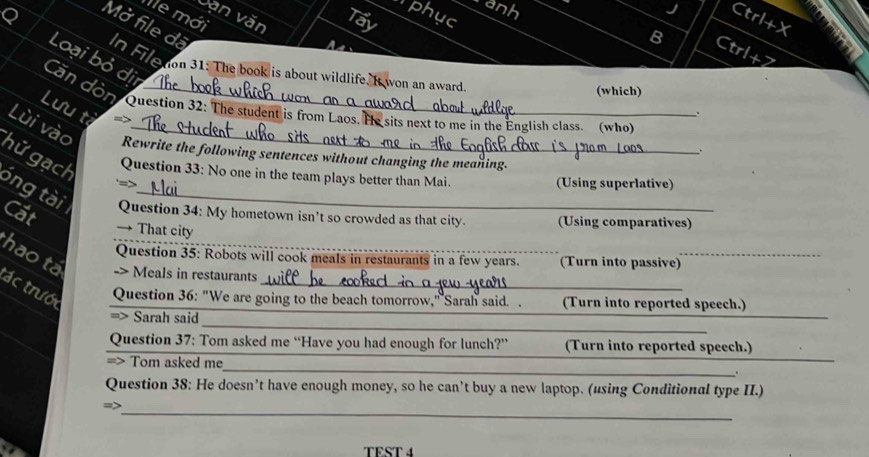 Q
Mở file đã
file mới
văn
Tẩy
phục
anh
J
Ctrl+X
In File
B
Ctrl+Z
Loại bỏ
Question 31: The book is about wildlife. It won an award. (which)
The book which won an a award about wildlife.
Lưu
Question 32: The student is from Laos. He sits next to me in the English class. (who)
=> The student who sits next to me in the English class is from Laos.
Lùi vào
Rewrite the following sentences without changing the meaning.
Question 33: No one in the team plays better than Mai. (Using superlative)
=> Mai
Question 34: My hometown isn't so crowded as that city. (Using comparatives)
→ That city
Cắt
Question 35: Robots will cook meals in restaurants in a few years. (Turn into passive)
-> Meals in restaurants will be cooked in a few years
thao
tác trước
Question 36: "We are going to the beach tomorrow," Sarah said. . (Turn into reported speech.)
=> Sarah said
Question 37: Tom asked me "Have you had enough for lunch?" (Turn into reported speech.)
=> Tom asked me .
Question 38: He doesn't have enough money, so he can't buy a new laptop. (using Conditional type II.)
=>
TEST 4